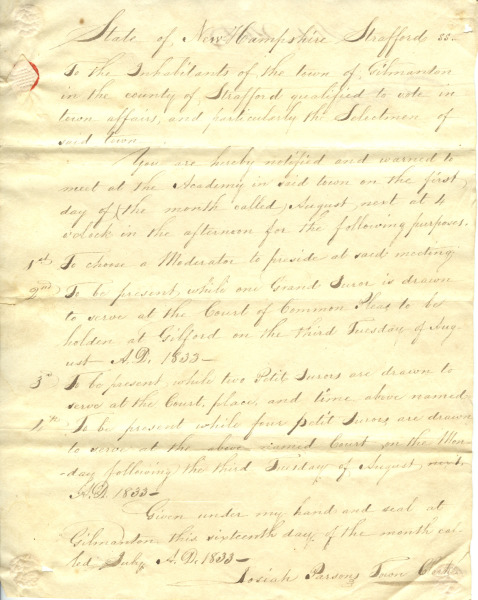 State of New Hampshire Strafford ss.
To the Inhabitants of the town of Gilmanton
in the county of Strafford qualified to vote in
town affairs, and particularly the Selectmen of
said town
You are hereby notified and warned to
meet at the Academy in said town on the first
day of (the month called) August next at 4
o'clock in the afternoon for the following purposes.
1st To choose a Moderator to preside at said meeting
2nd To be present while one Grand Juror is drawn
to serve at the Court of Common Pleas to be
holden at Gilford on the third Tuesday of Aug-
ust A.D. 1833-
3d To be present while two Petit Jurors are drawn to
serve at the Court, place, and time above named
4th To be present while four petit Jurors are drawn
to serve at the above named Court on the Mon-
-day following the third Tuesday of August, next,
A.D. 1833-
Given under my hand and seal at
Gilmanton this sixteenth day of the month cal-
led July A.D. 1833-
Josiah Parsons Town Clerk